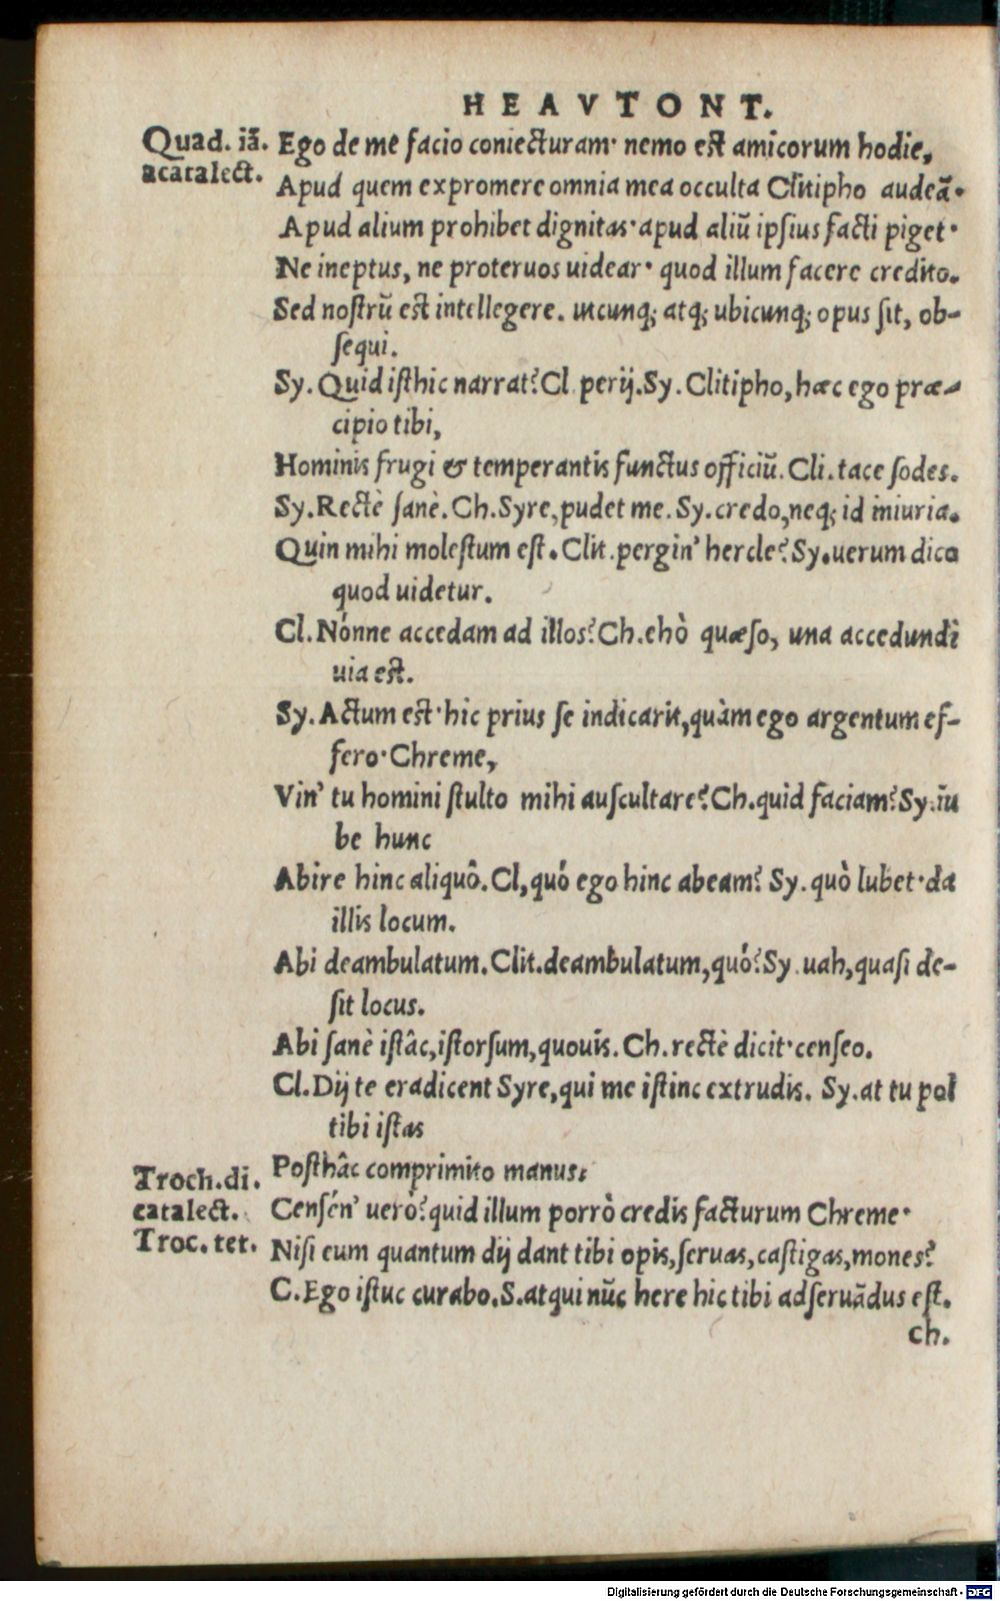 HEAVTONT.
Quad. iā. Ego de me facio coniecturam· nemo est amicorum hodie,
acatalect. Apud quem expromere omnia mea occulta Clitipho audeā·
Apud alium prohibet dignitas·apud aliū ipſius facti piget·
Ne ineptus, ne proteruos uidear· quod illum facere credito.
Sed noſtrū est intellegere. utcunq; atq; ubicunq; opus ſit, ob-
ſequi.
Sy. Quid iſthic narrat? Cl. perij. Sy. Clitipho, hæc ego præ-
cipio tibi,
Hominis frugi & temperantis functus officiū. Cli. tace ſodes.
Sy. Rectè ſanè. Ch. Syre, pudet me. Sy. credo, neq; id iniuria.
Quin mihi moleſtum eſt. Clit. pergin' hercle? Sy. uerum dico
quod uidetur.
Cl. Nónne accedam ad illos? Ch. ehò quæſo, una accedundi
uia est.
Sy. Actum est·hic prius ſe indicarit, quàm ego argentum ef-
fero·Chreme,
Vin' tu homini ſtulto mihi auſcultare? Ch. quid faciam? Sy. iu
be hunc
Abire hinc aliquô. Cl, quó ego hinc abeam? Sy. quò lubet·da
illis locum.
Abi deambulatum. Clit. deambulatum, quó? Sy. uah, quaſi de-
ſit locus.
Abi ſanè iſtâc, iſtorſum, quouis. Ch. rectè dicit·cenſeo.
Cl. Dij te eradicent Syre, qui me iſtinc extrudis. Sy. at tu pol
tibi iſtas
Poſthâc comprimito manus.
Troch. di. Cenſén' uerò? quid illum porrò credis facturum Chreme·
catalect.
Troc. tet. Niſi eum quantum dij dant tibi opis, ſeruas, caſtigas, mones?
C. Ego iſtuc curabo. S. atqui nūc here hic tibi adſeruādus eſt.
ch.
Digitalisierung gefördert durch die Deutsche Forschungsgemeinschaft - DFG